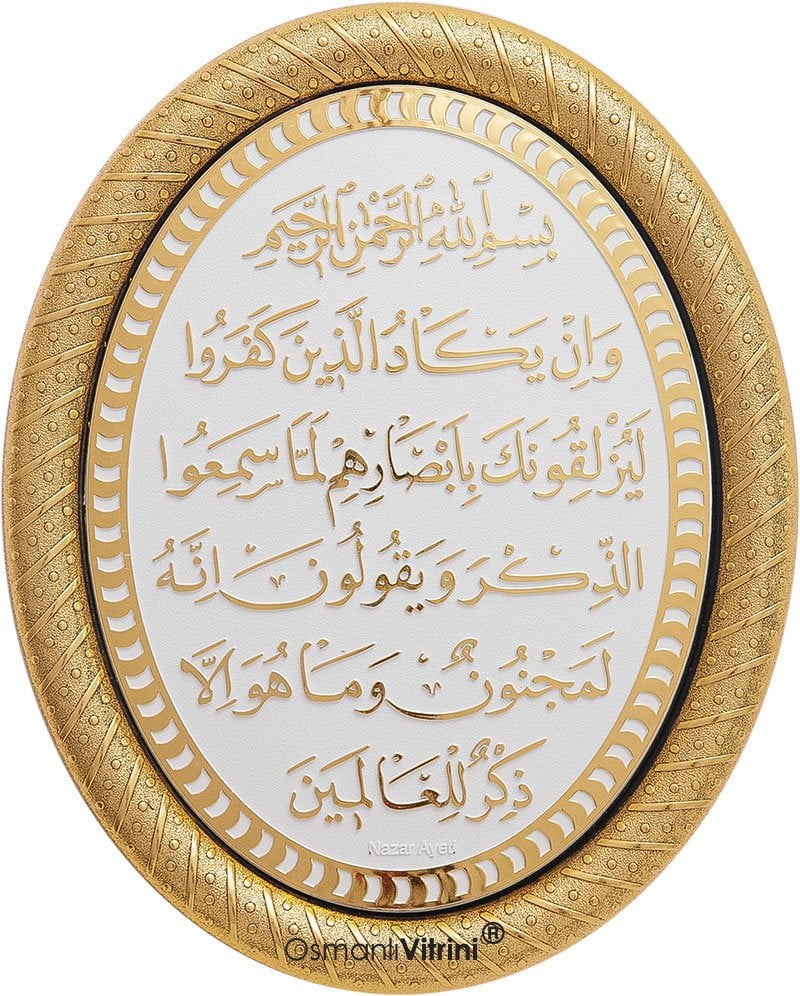 بِسْمِ اللهِ الرَّحْمٰنِ الرَّحِيمِ
وَاِنْ يَكَادُ الَّذِينَ كَفَرُوا
لَيُزْلِقُونَكَ بِاَبْصَارِهِمْ لَمَّا سَمِعُوا
الذِّكْرَ وَيَقُولُونَ اِنَّهُ
لَمَجْنُونٌ وَمَا هُوَ اِلَّا
ذِكْرٌ لِلْعَالَمِينَ
Nazar Ayeti
OsmanlıVitrini®